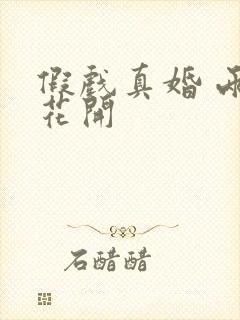 假戏真婚
花開
石醋醋